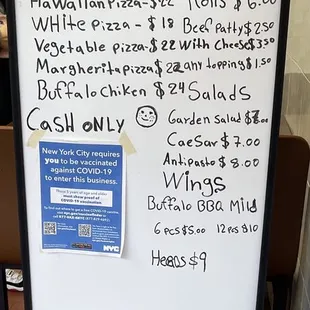 Hawaiian Pizza-$22
White Pizza - $18
Vegetable pizza-$22
Margherita Pizza $22
Buffalo Chiken $24
Cash only
Rolls $6.00
Beef Patty $2.50
With Cheese $3.50
any topping $1.50
Salads
Garden salad
Caesar $7.00
Antipasto $8.00
Wings
Buffalo BBQ Mild
6 pcs $5.00 12 pcs $10
Heros $9
New York City requires
you to be vaccinated
against COVID-19
to enter this business.
People 5 years of age and older
must show proof of
COVID-19 vaccination.
NYC